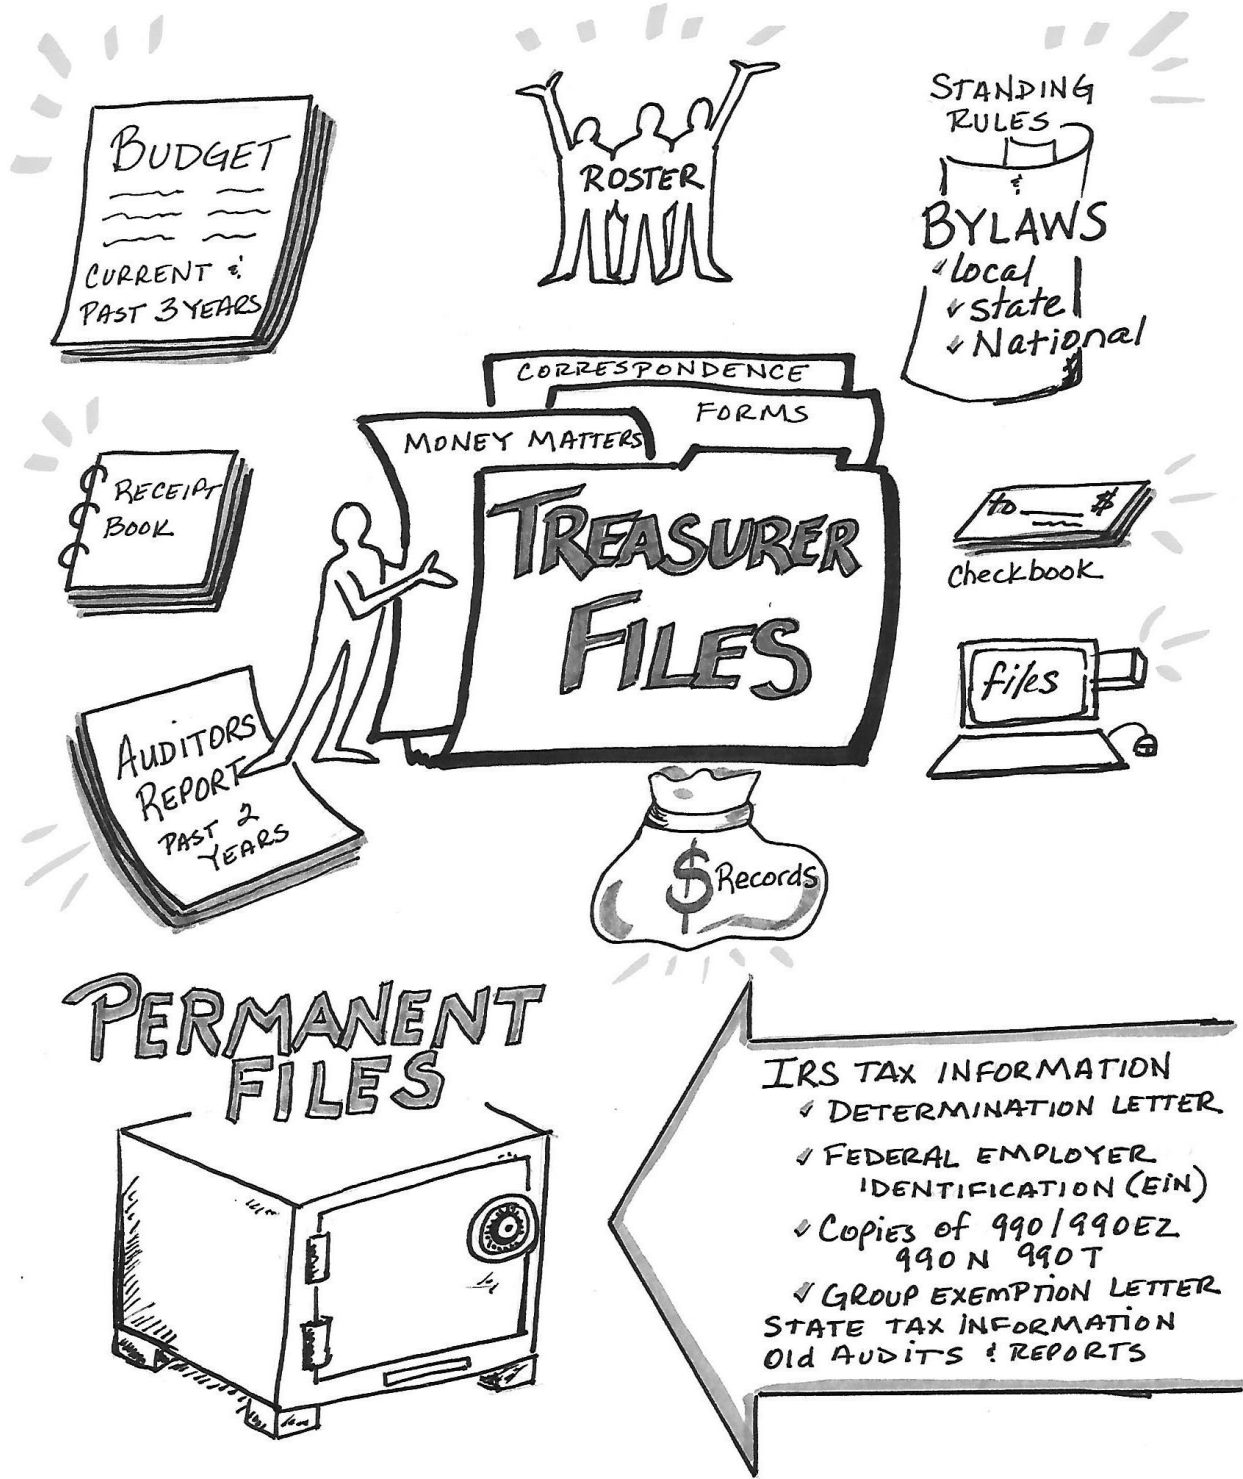 BUDGET
CURRENT &
PAST 3 YEARS
ROSTER
STANDING
RULES
&
BYLAWS
local
state
National
CORRESPONDENCE
FORMS
MONEY MATTERS
TREASURER
FILES
RECEIPT
BOOK
to $
checkbook
files
AUDITORS
REPORT
PAST 2
YEARS
$ Records
PERMANENT
FILES
IRS TAX INFORMATION
✓ DETERMINATION LETTER
✓ FEDERAL EMPLOYER
IDENTIFICATION (EiN)
✓ Copies of 990/990EZ
990N 990T
✓ GROUP EXEMPTION LETTER
STATE TAX INFORMATION
Old AUDITS & REPORTS